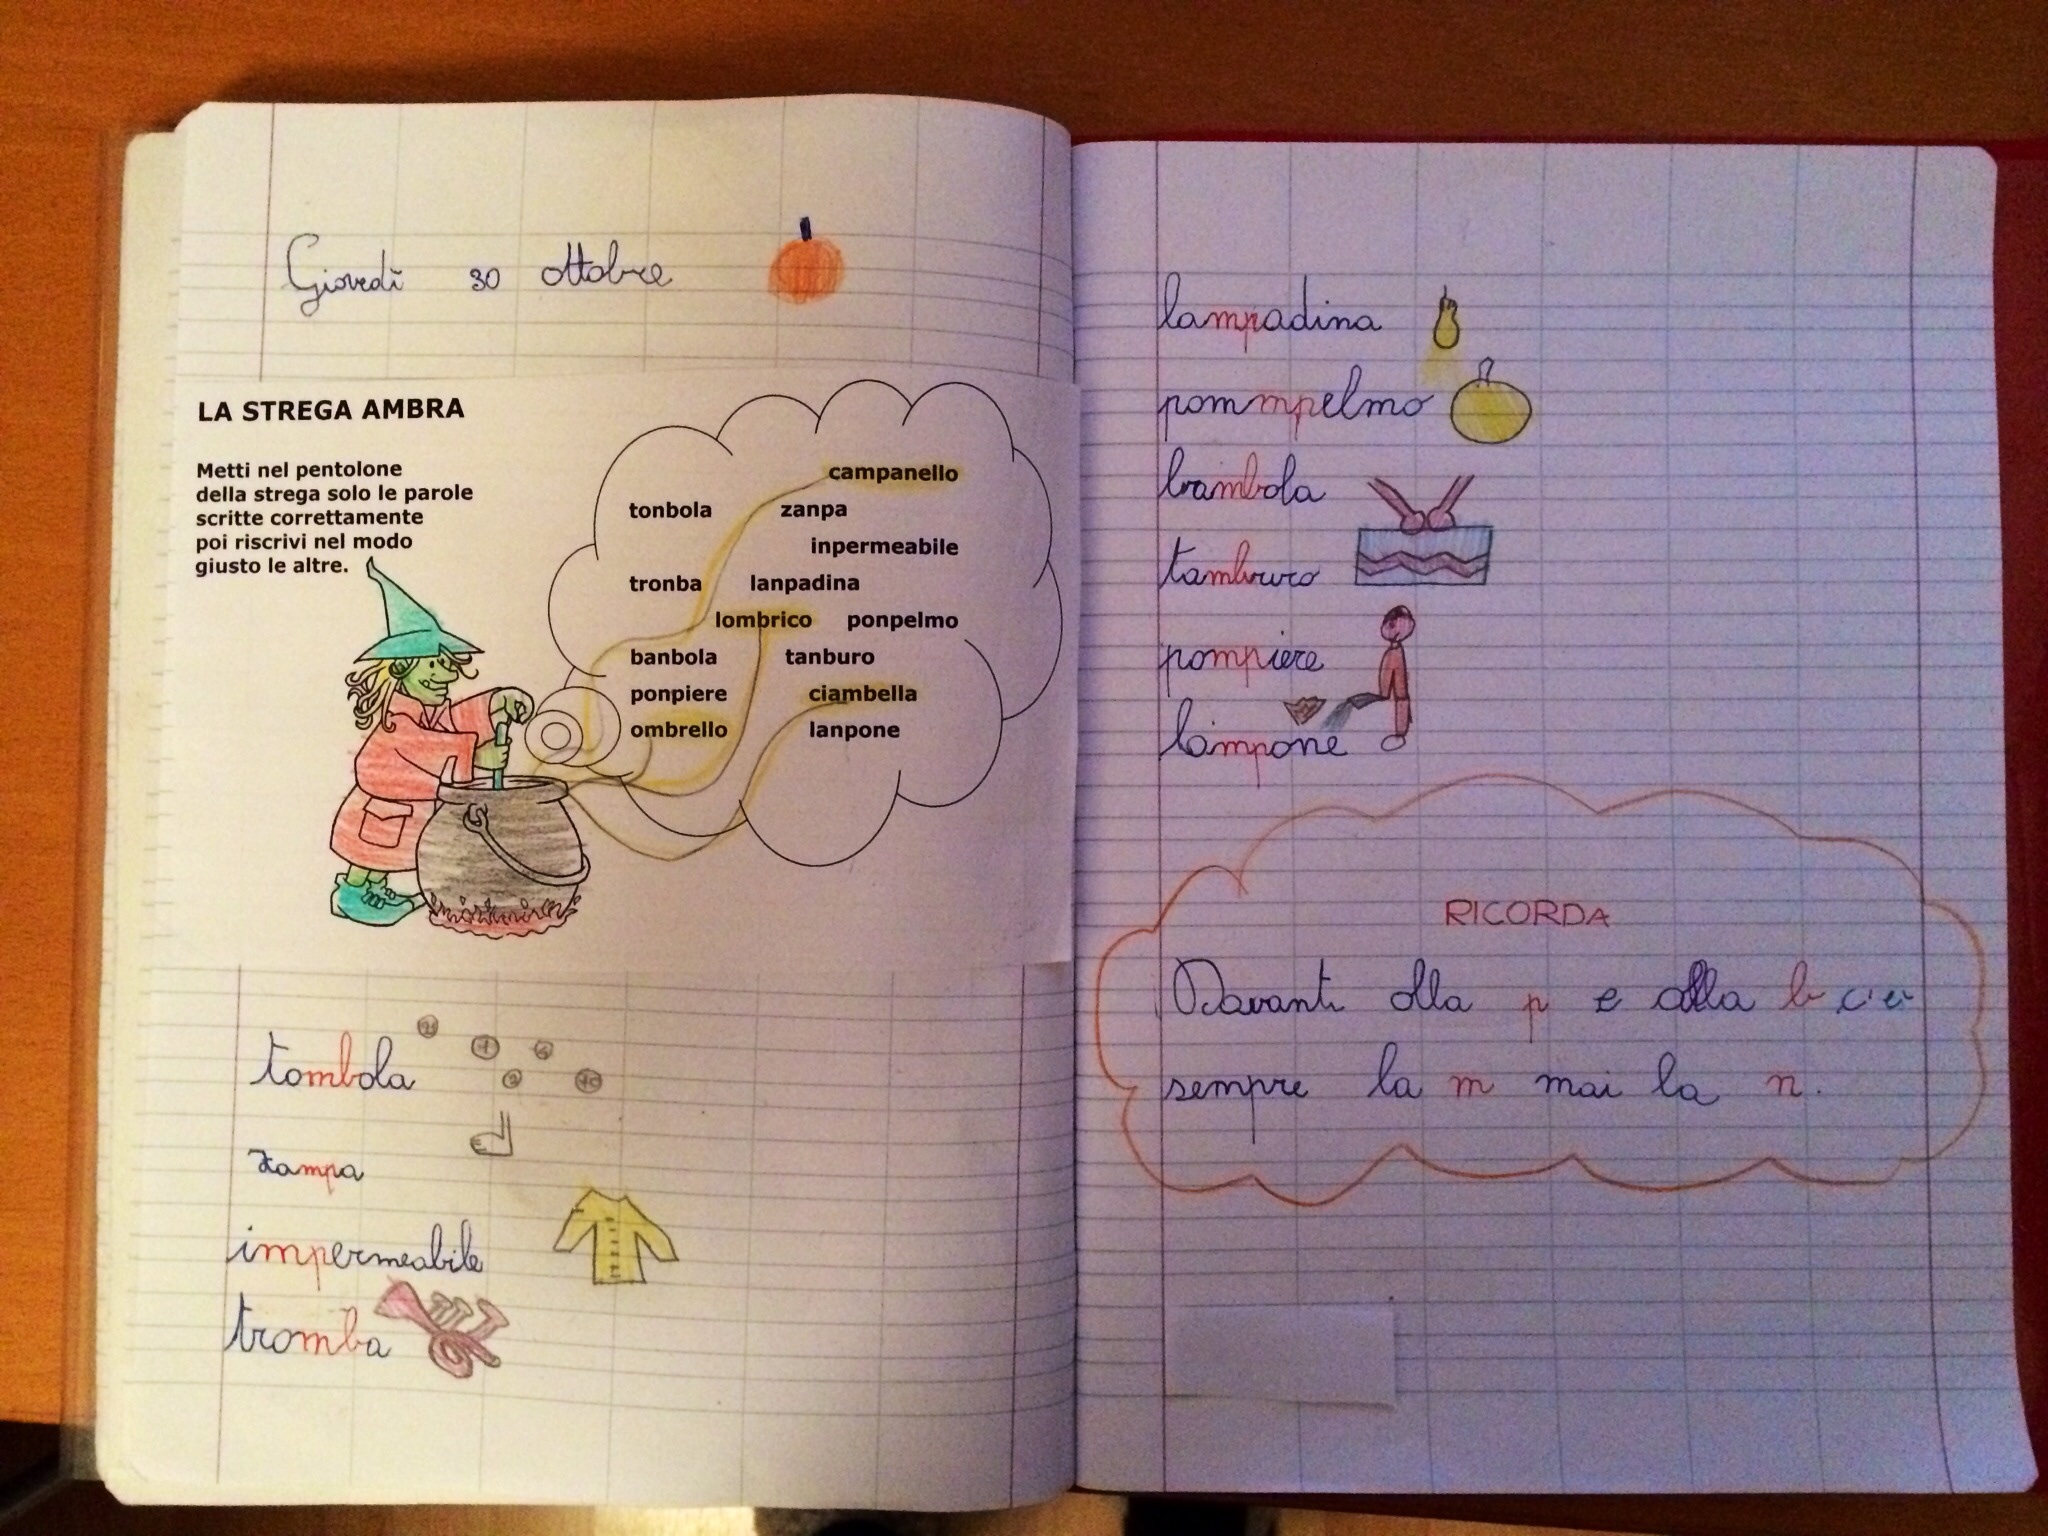 Giovedì 30 ottobre
LA STREGA AMBRA
Metti nel pentolone
della strega solo le parole
scritte correttamente
poi riscrivi nel modo
giusto le altre.
campanello
tonbola zanpa
inpermeabile
tronba lanpadina
lombrico ponpelmo
banbola tanburo
ponpiere ciambella
ombrello lanpone
tombola
zampa
impermeabile
tromba
lampadina
pommpelmo
bambola
tamburo
pompiere
lampone
RICORDA
Davanti alla p e alla b c'è
sempre la m mai la n.